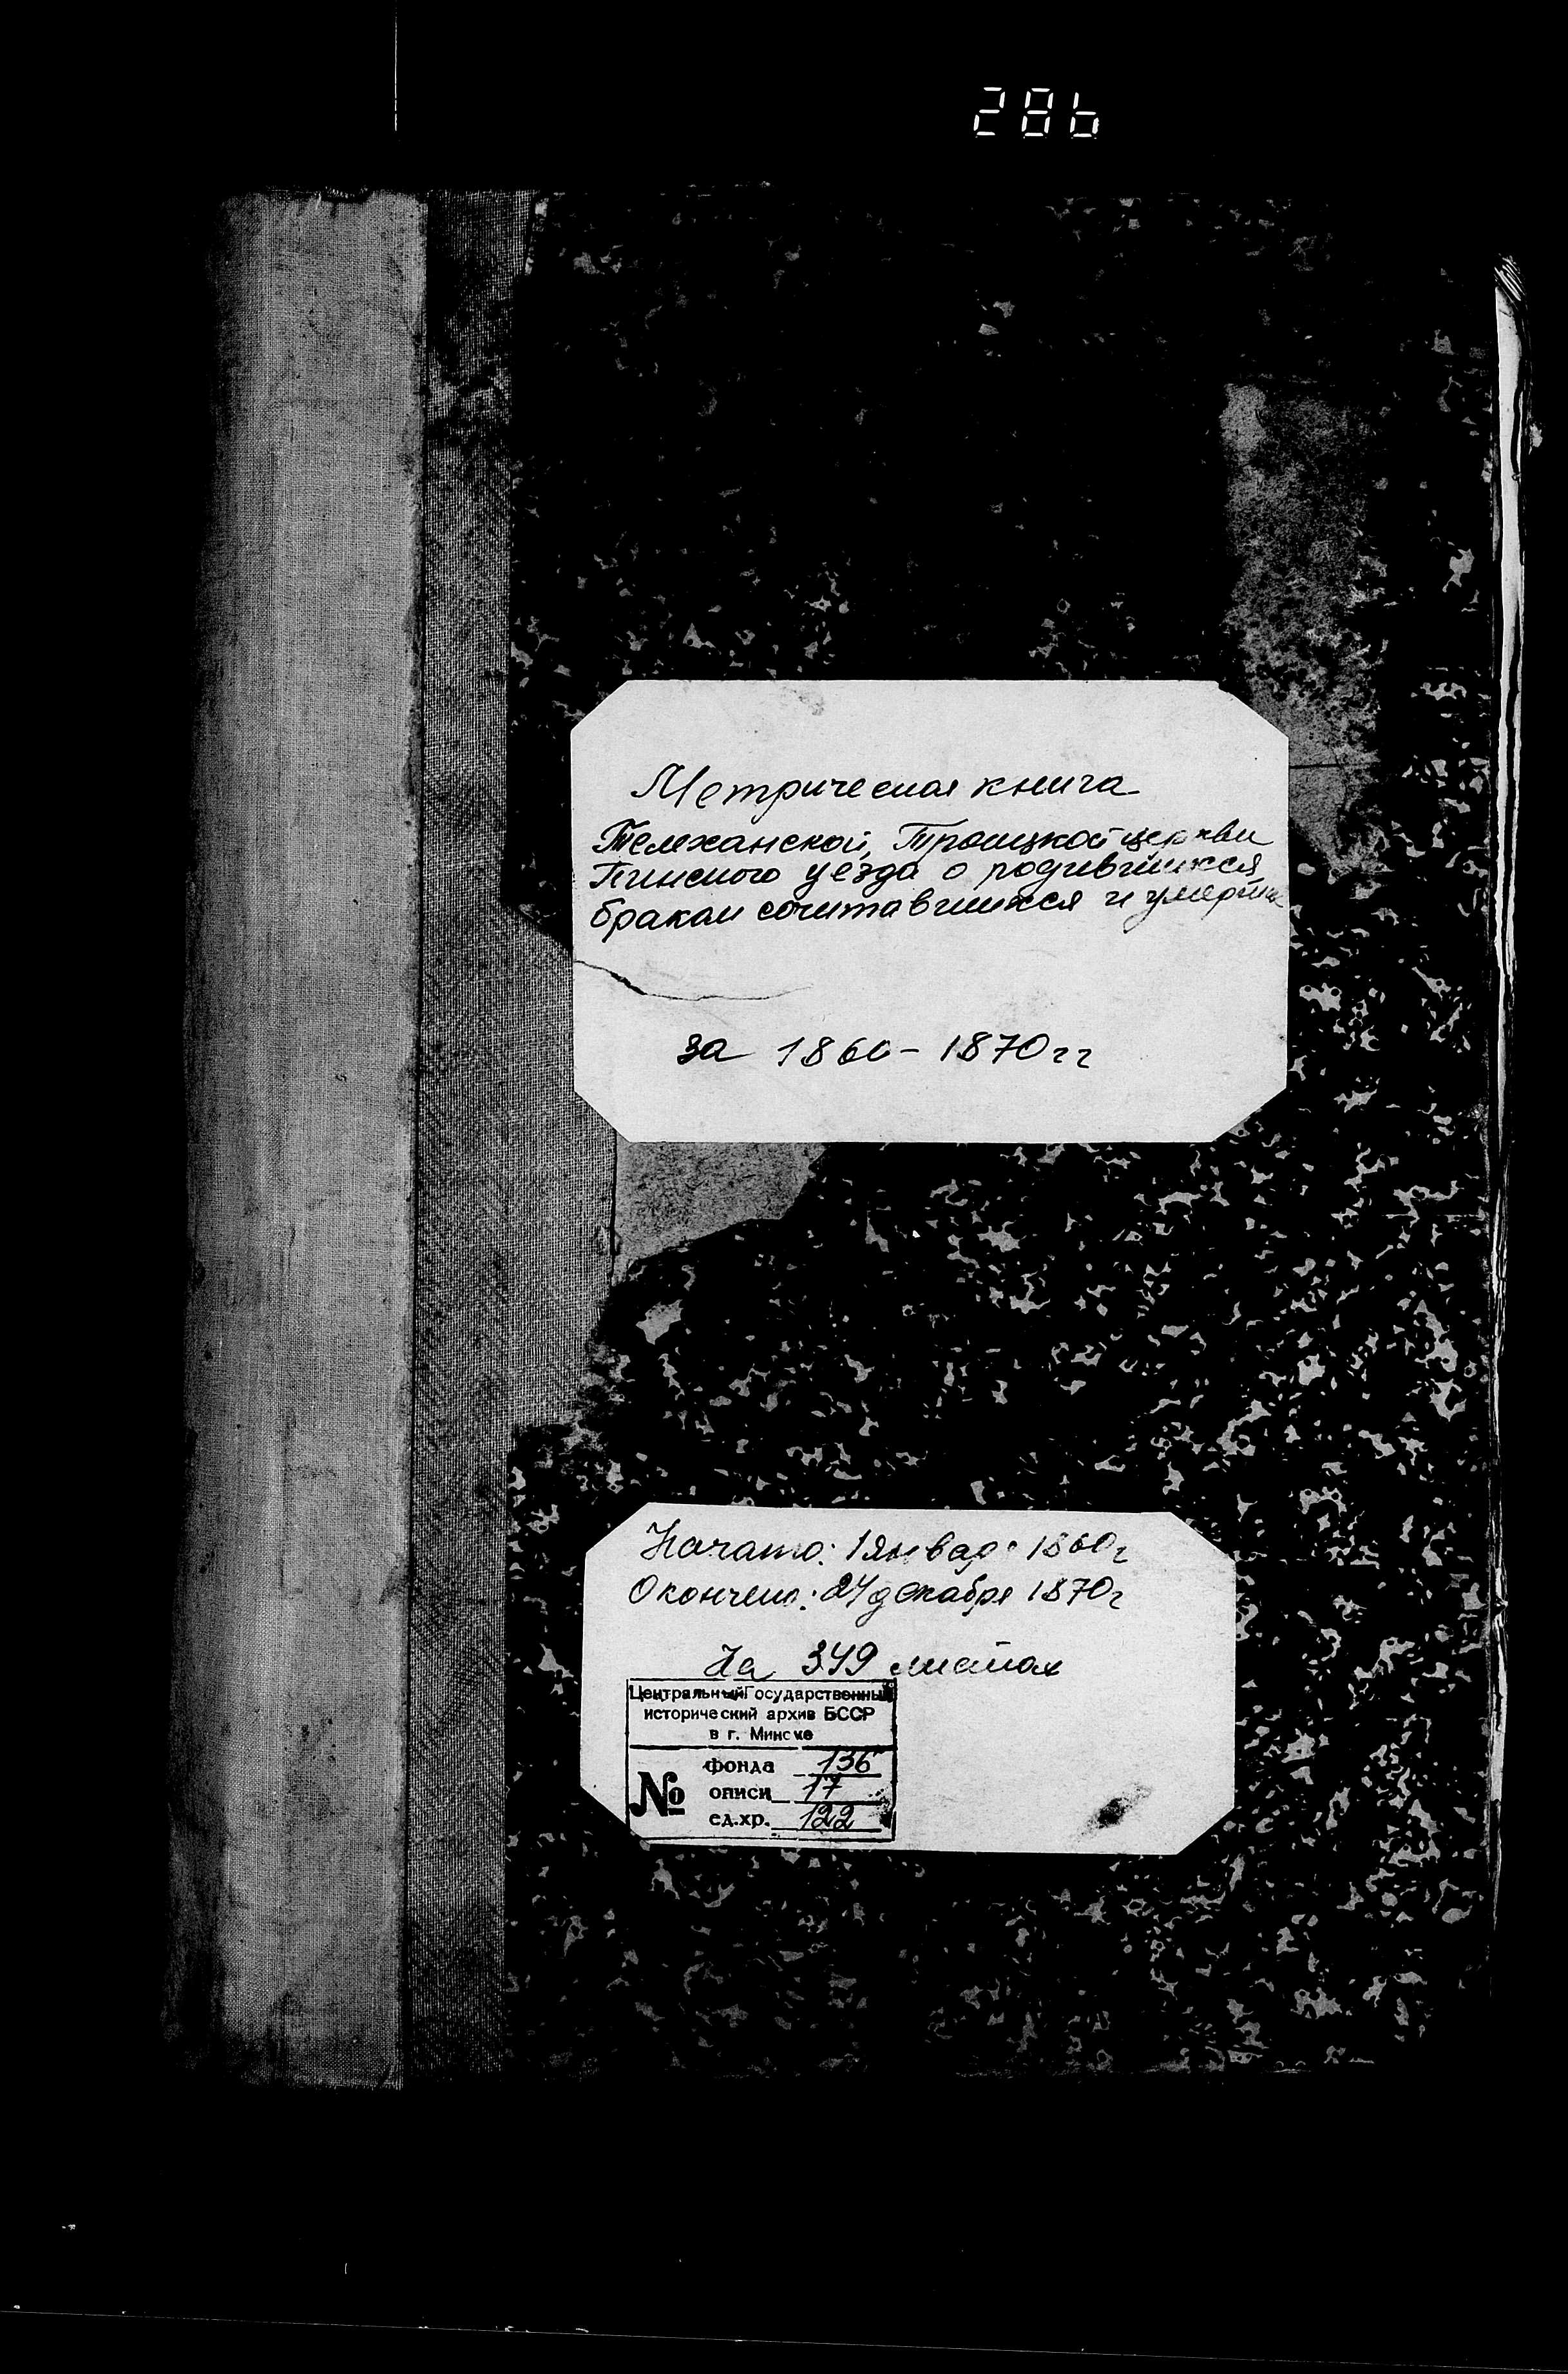 286
Метрическая книга
Телеханской, Троицкой церкви
Пинского уезда о родившихся
браком сочитавшихся и умерших
за 1860 - 1870 гг
Начато: 1 январ. 1860 г
Окончено: 24 декабря 1870 г
На 349 листах
Центральный Государственный
исторический архив БССР
в г. Минске
№
фонда 136
описи 17
ед.хр. 122